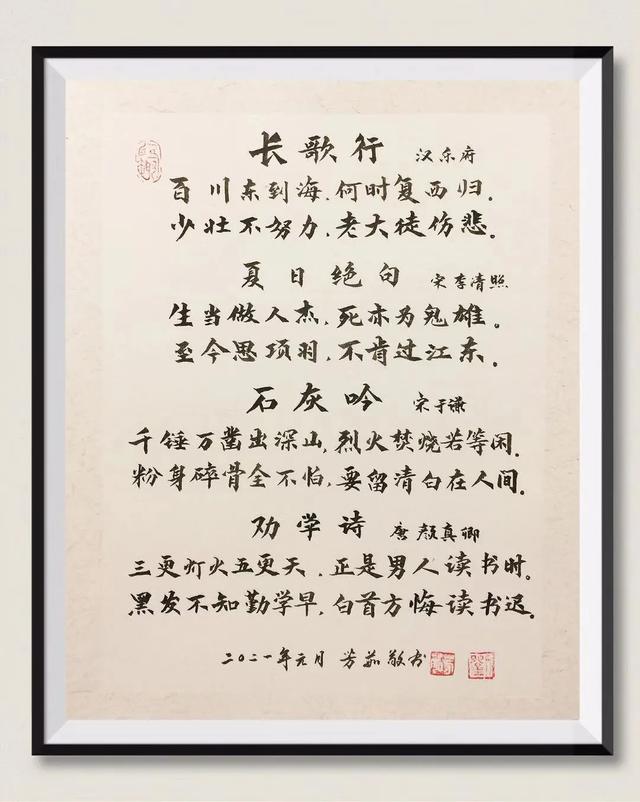 长歌行 汉乐府
百川东到海,何时复西归。
少壮不努力,老大徒伤悲。
夏日绝句 宋李清照
生当做人杰,死亦为鬼雄。
至今思项羽,不肯过江东。
石灰吟 宋于谦
千锤万凿出深山,烈火焚烧若等闲。
粉身碎骨全不怕,要留清白在人间。
劝学诗 唐颜真卿
三更灯火五更天,正是男人读书时。
黑发不知勤学早,白首方悔读书迟。
二〇二一年元月 芳茹敬书